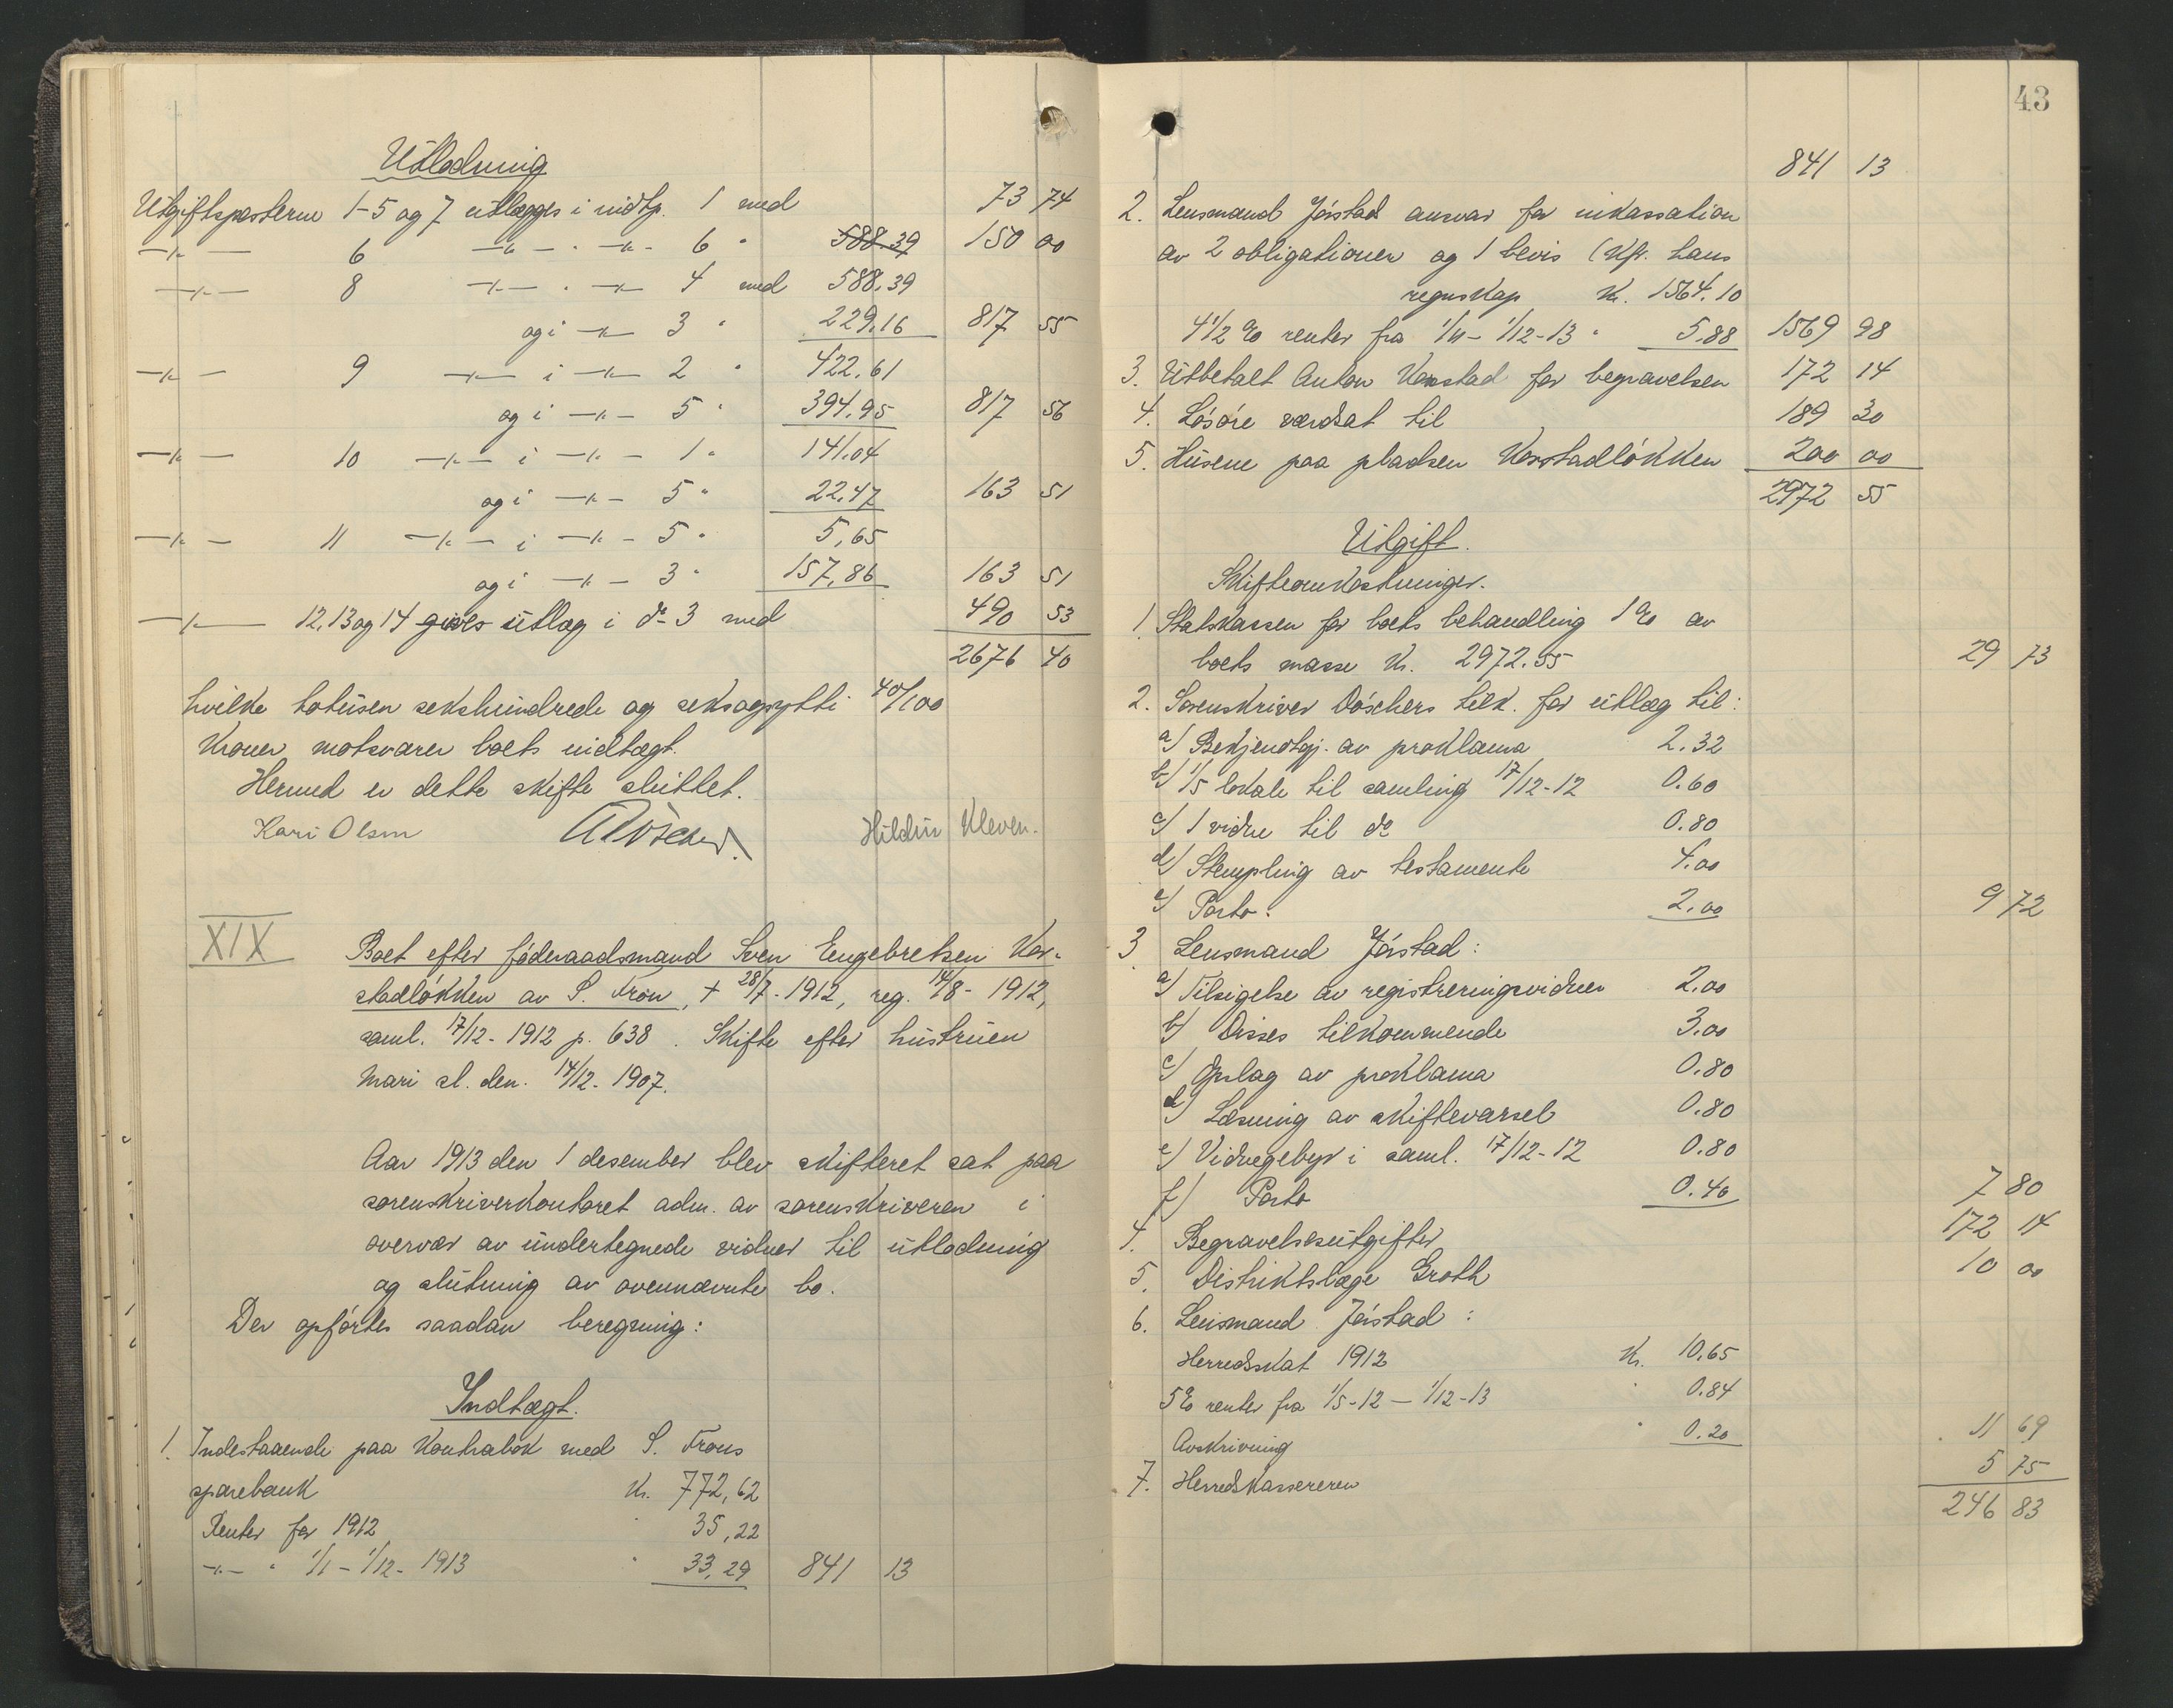 Utlodning
Utgiftsposterne 1-5 og 7 utlægges i indtg. 1 med 73 74
-"- 6 -"- . -"- 6 " 588.39 150 00
-"- 8 -"- . -"- 4 med 588.39
og i -"- 3 " 229.16 817 55
-"- 9 -"- i -"- 2 " 422.61
og i -"- 5 " 394.95 817 56
-"- 10 -"- i -"- 1 " 141.04
og i -"- 5 " 22.47 163 51
-"- 11 -"- i -"- 5 " 5.65
og i -"- 3 " 157.86 163 51
-"- 12, 13 og 14 gives utlæg i do 3 med 490 53
2676 40
hvilke totusen sekshundrede og seksogsytti 40/100
kroner motsvarer boets indtægt.
Hermed er dette skifte sluttet.
Kari Olsen Hildur Kleven.
XIX
Boet efter føderaadsmand Sven Engebretsen Kor-
stadløkken av S. Fron, † 28/7-1912, reg. 14/8-1912,
saml. 17/12-1912 p. 638. Skifte efter hustruen
Mari sl. den. 14/12-1907.
Aar 1913 den 1 desember blev skifteret sat paa
sorenskriverkontoret adm. av sorenskriveren i
overvær av undertegnede vidner til utlodning
og slutning av ovennævnte bo.
Der opførtes saadan beregning:
Indtægt.
1. Indestaaende paa kontrabok med S. Frons
sparebank Kr. 772,62
Renter for 1912 " 35,22
-"- " 1/1-1/12-1913 " 33,29 841 13
43
841 13
2. Lensmand Jørstad ansvar for inkassation
av 2 obligationer og 1 bevis (Kfr. hans
regnskap Kr. 1564.10
4 1/2 % renter fra 1/11-1/12-13 " 5.88 1569 98
3. Utbetalt Anton Korstad for begravelsen 172 14
4. Løsøre værdsat til 189 30
5. Husene paa pladsen Korstadløkken 200 00
2972 55
Utgift.
Skifteomkostninger.
1. Statskassen for boets behandling 1 % av
boets masse Kr. 2972.55 29 73
2. Sorenskriver Döschers tilk. for utlæg til:
a) Bekjendtgj. av proklama 2.32
b) 1/5 lokale til samling 17/12-12 0.60
c) 1 vidne til do 0.80
d) Stempling av testamente 4.00
e) Porto. 2.00 9 72
3. Lensmand Jørstad:
a) Tilsigelse av registreringsvidner 2.00
b) Disses tilkommende 3.00
c) Opslag av proklama 0.80
d) Læsning av skiftevarsel 0.80
e) Vidnegebyr i saml. 17/12-12 0.80
f) Porto 0.40 7 80
4. Begravelsesutgifter 172 14
5. Distriktslæge Groth 10 00
6. Lensmand Jørstad:
Herredsskat 1912 Kr. 10.65
5 % renter fra 1/5-12 - 1/12-13 " 0.84
Avskrivning " 0.20 11 69
7. Herredskassereren 5 75
246 83